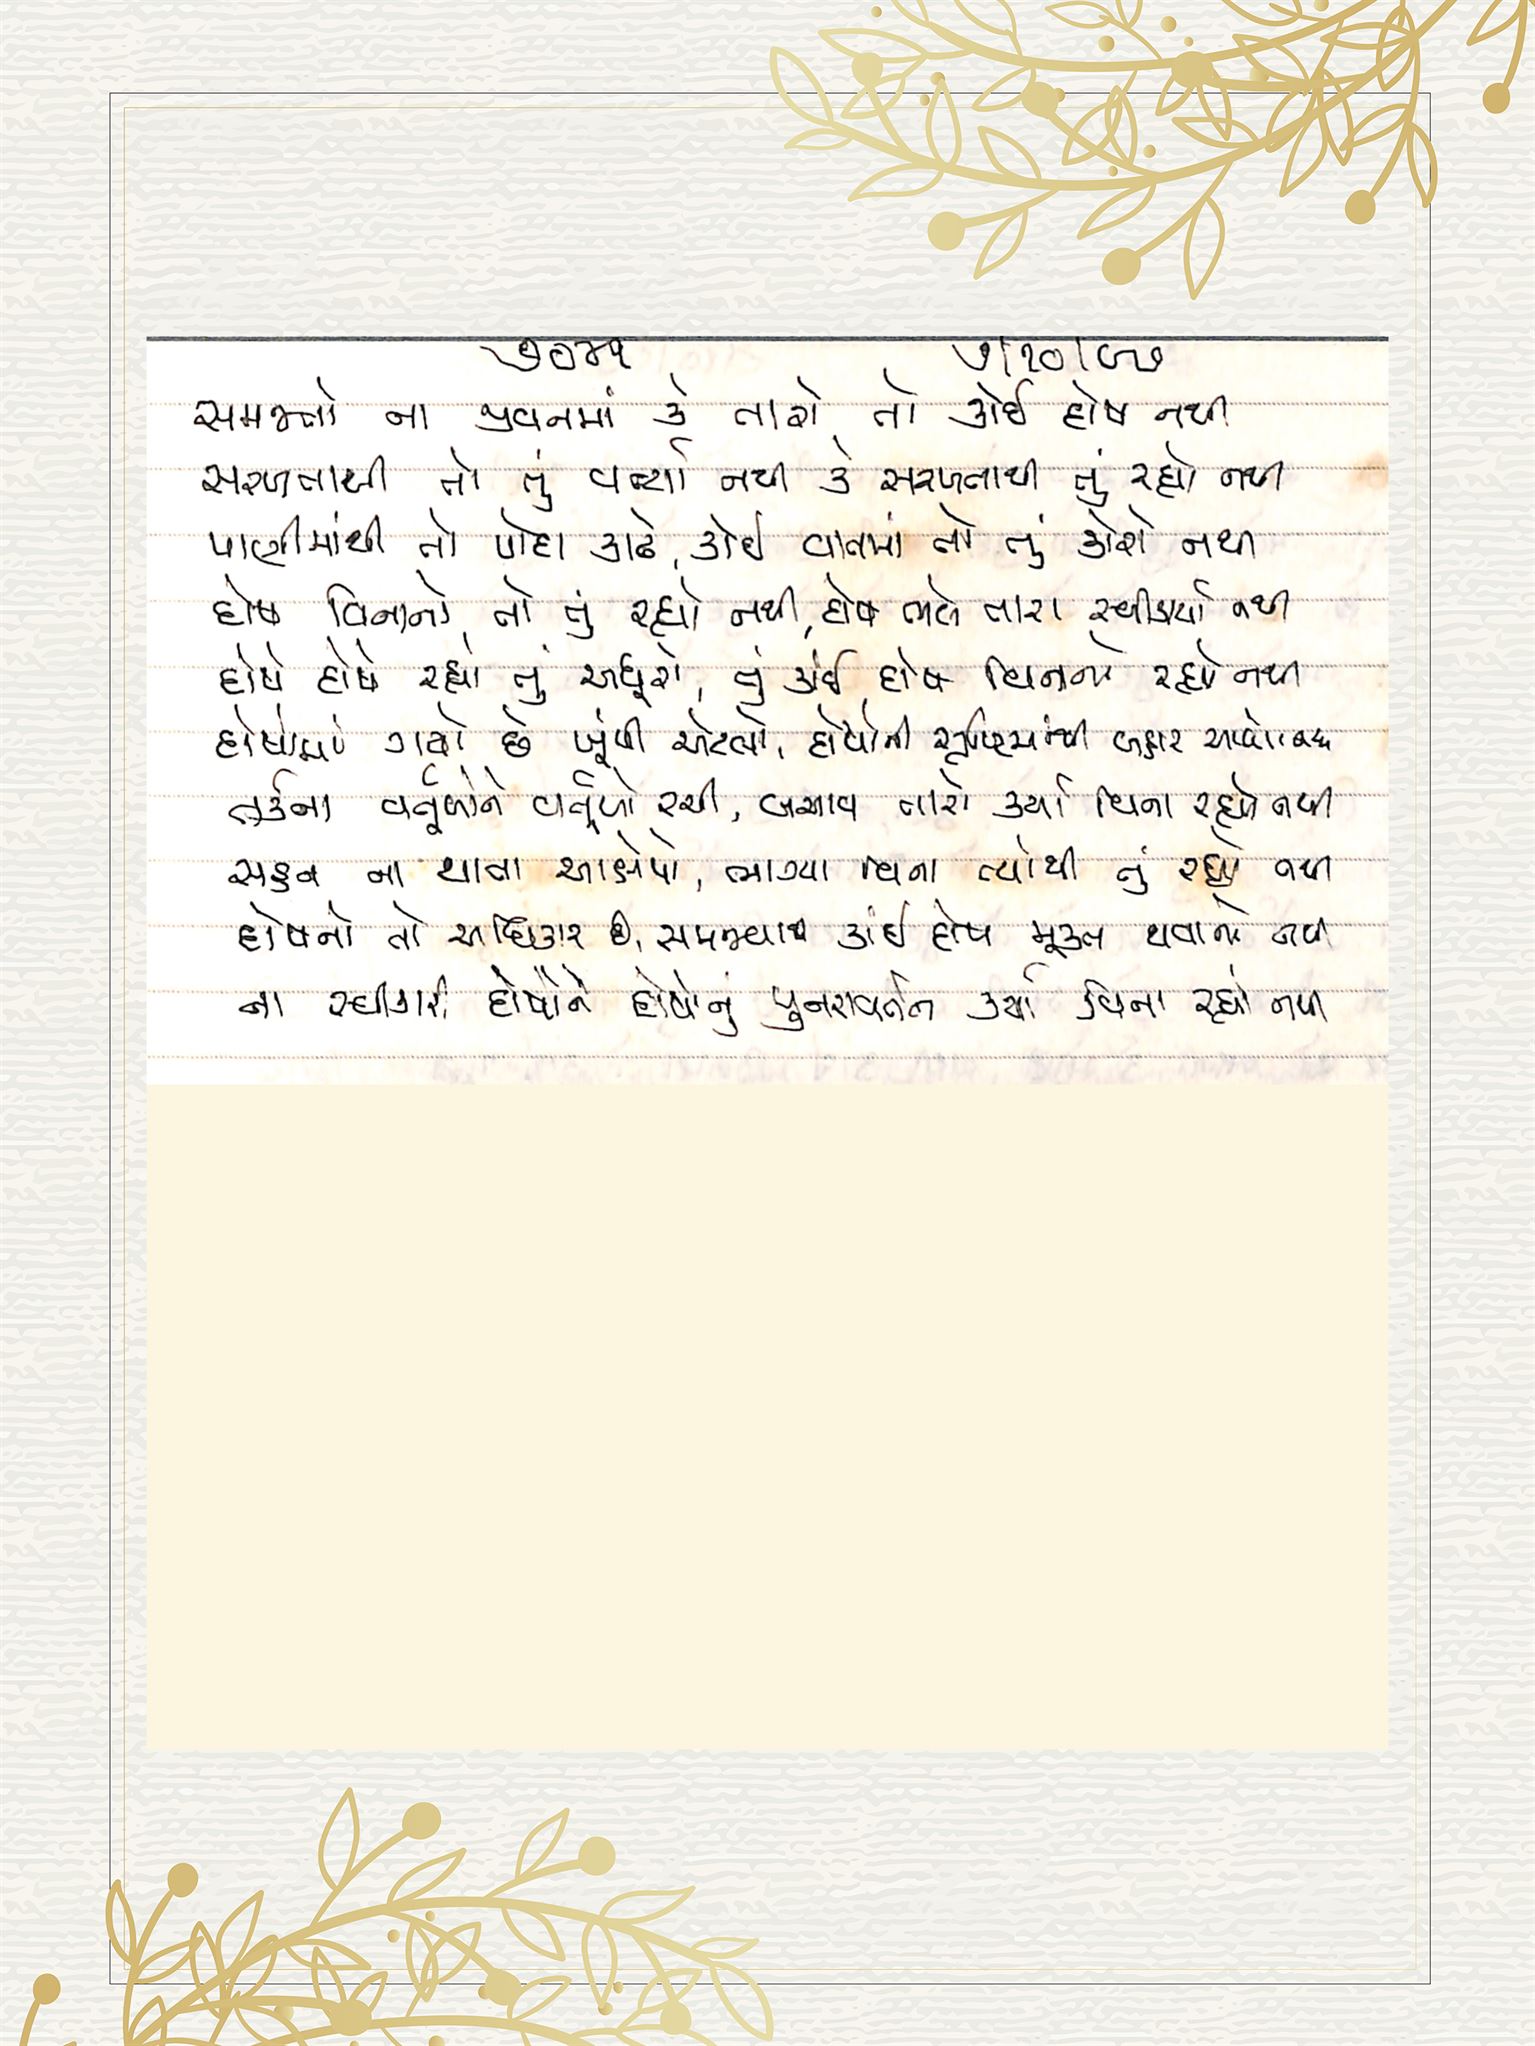 ૭૦૪૧ ૭/૧૦/૯૭
સમજતો ના જીવનમાં કે તારો, તો કોઈ દોષ નથી
સરળતાથી તો તું વર્ત્યો નથી કે સરળતાથી તું રહ્યો નથી
પાણીમાંથી તો પોરા કાઢે, કોઈ વાતમાં તો તું કોરો નથી
દોષ વિનાનો, તો તું રહ્યો નથી, દોષ ભલે તારા સ્વીકાર્યા નથી
દોષે દોષે રહ્યો તું અધૂરો, તું કાંઈ દોષ વિનાનો રહ્યો નથી
દોષોમાં ગયો છે ખૂંપી એટલો, દોષોની સૃષ્ટિમાંથી બહાર આવ્યો નથી
તર્કના વર્તુળોને વર્તુળો રચી, બચાવ તારો કર્યા વિના રહ્યો નથી
સહન ના થાતા આક્ષેપો, ભાગ્યા વિના ત્યાંથી તું રહ્યો નથી
દોષનો તો અધિકાર છે, સમજ્યા કાંઈ દોષ મૂક્ત થવાનો નથી
ના સ્વીકારી દોષોને દોષોનું પુનરાવર્તન કર્યા વિના રહ્યો નથી